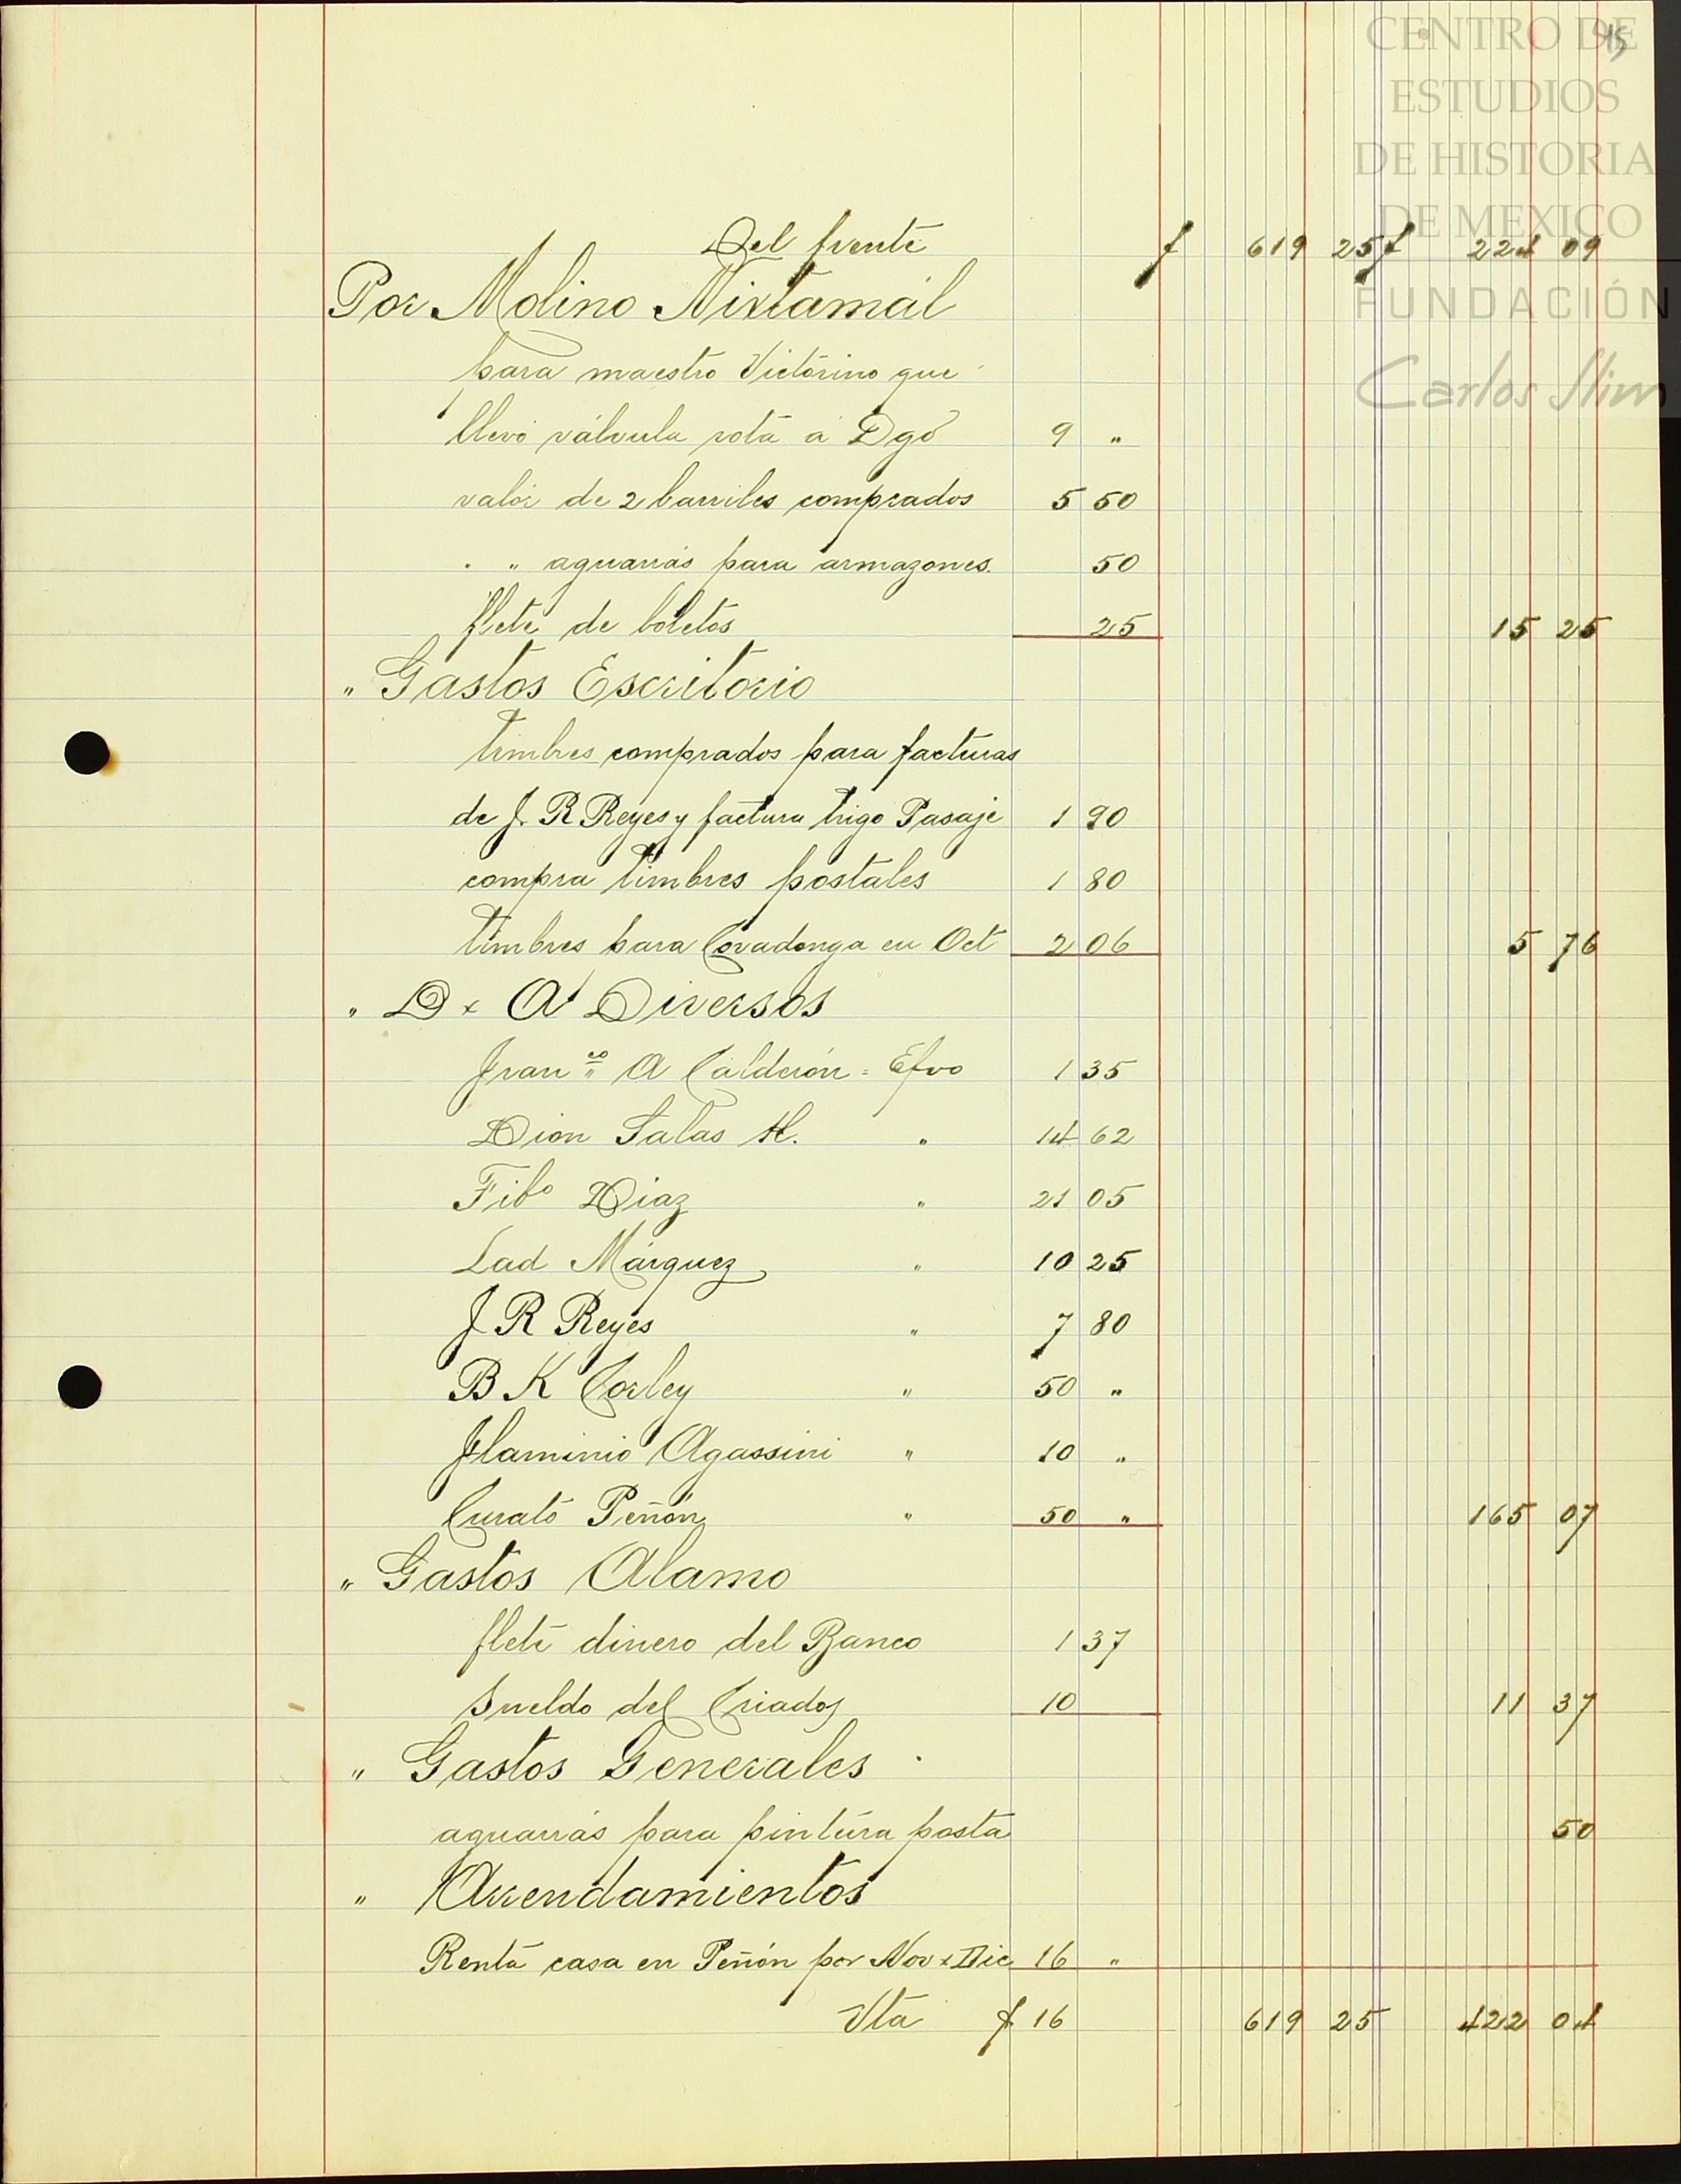 CENTRO DE
ESTUDIOS
DE HISTORIA
DE MEXICO
FUNDACIÓN
Carlos Slim
15
Del frente $ 619 25 $ 224 09
Por Molino Nixtamal
para maestro Victorino que
llevó válvula rota á Dgo 9 "
valor de 2 barriles comprados 5 50
" " aguarrás para armazones. 50
flete de boletos 25 15 25
" Gastos Escritorio
timbres comprados para facturas
de J. R Reyes y factura trigo Pasaje 1 90
compra timbres postales 1 80
timbres para Covadonga en Oct 2 06 5 76
" D x A Diversos
Franco A Calderón = Efvo 1 35
Dion Salas H. " 14 62
Fibo Diaz " 21 05
Lad Márquez " 10 25
J R Reyes " 7 80
B K Corley " 50 "
Flaminio Agassini " 10 "
Curato Peñón " 50 " 165 07
" Gastos Alamo
flete dinero del Banco 1 37
Sueldo del Criados 10 11 37
" Gastos Generales
aguarrás para pintura posta 50
" Arrendamientos
Renta casa en Peñón por Nov x Dic 16 "
Vta $ 16 619 25 422 04